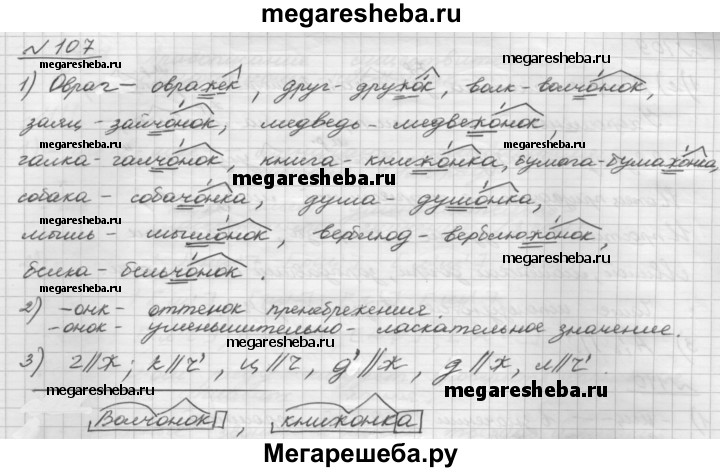 megaresheba.ru
№ 107 megaresheba.ru
1) Овраг – овражек, друг – дружок, волк – волчонок,
megaresheba.ru
заяц – зайчонок, медведь – медвежонок,
галка – галчонок, книга – книжонка, бумага – бумажонка,
megaresheba.ru megaresheba.ru
собака – собачонка, душа – душонка,
мышь – мышонок, верблюд – верблюжонок,
белка – бельчонок. megaresheba.ru
megaresheba.ru
2) -онк – оттенок пренебрежения.
-онок – уменьшительно – ласкательное значение.
megaresheba.ru
3) г//ж; к//ч', ц//ч, д'//ж, д//ж,
megaresheba.ru megaresheba.ru
Волчонок, книжонка
Мегарешеба.ру